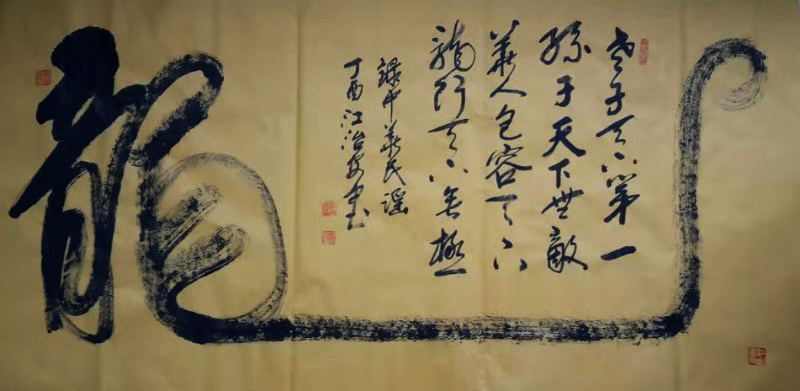 老子天下第一
孫子天下無敵
華人包容天下
龍行天下無極
錄中華民謠
丁酉江治安書
龍